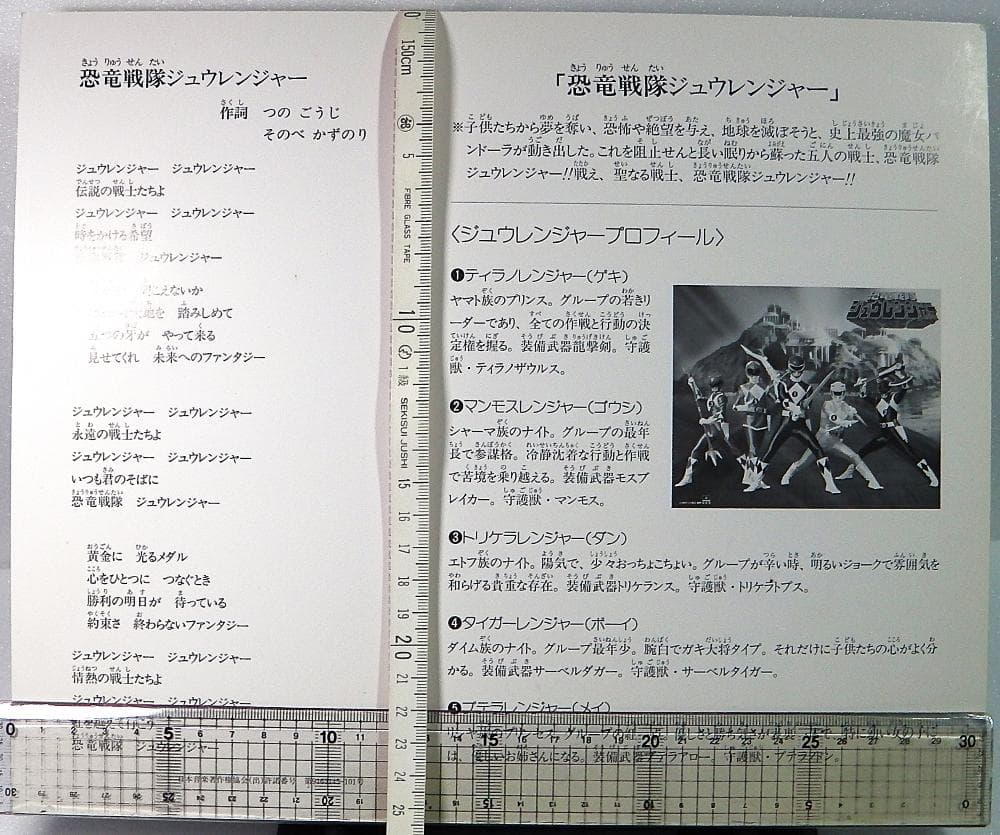 恐竜戦隊ジュウレンジャー
作詞 つの ごうじ
そのべ かずのり
ジュウレンジャー ジュウレンジャー
伝説の戦士たちよ
ジュウレンジャー ジュウレンジャー
時をかける希望
ジュウレンジャー
こえないか
踏みしめて
五つの牙が やって来る
見せてくれ 未来へのファンタジー
ジュウレンジャー ジュウレンジャー
永遠の戦士たちよ
ジュウレンジャー ジュウレンジャー
いつも君のそばに
恐竜戦隊 ジュウレンジャー
黄金に 光るメダル
心をひとつに つなぐとき
勝利の明日が 待っている
約束さ 終わらないファンタジー
ジュウレンジャー ジュウレンジャー
情熱の戦士たちよ
ジュウレンジャー ジュウレンジャー
恐竜戦隊 ジュウレンジャー
日本音楽著作権協会(出)許諾番号
「恐竜戦隊ジュウレンジャー」
※子供たちから夢を奪い、恐怖や絶望を与え、地球を滅ぼそうと、史上最強の魔女バ
ンドーラが動き出した。これを阻止せんと長い眠りから蘇った五人の戦士、恐竜戦隊
ジュウレンジャー!!戦え、聖なる戦士、恐竜戦隊ジュウレンジャー!!
〈ジュウレンジャープロフィール〉
❶ティラノレンジャー(ゲキ)
ヤマト族のプリンス。グループの若きリ
ーダーであり、全ての作戦と行動の決
定権を握る。装備武器龍撃剣。守護
獣・ティラノザウルス。
❷マンモスレンジャー(ゴウシ)
シャーマ族のナイト。グループの最年
長で参謀格。冷静沈着な行動と作戦
で苦境を乗り越える。装備武器モスブ
レイカー。守護獣・マンモス。
❸トリケラレンジャー(ダン)
エトフ族のナイト。陽気で、少々おっちょこちょい。グループが辛い時、明るいジョークで雰囲気を
和らげる貴重な存在。装備武器トリケランス。守護獣・トリケラトプス。
❹タイガーレンジャー(ボーイ)
ダイム族のナイト。グループ最年少。腕白でガキ大将タイプ。それだけに子供たちの心がよく分
かる。装備武器サーベルダガー。守護獣・サーベルタイガー。
❺プテラレンジャー(メイ)
は、優しいお姉さんになる。装備武器プテラアロー。守護獣・プテラノドン。
恐竜戦隊
ジュウレンジャー
150cm
5
FIBRE GLASS TAPE
10
1級
SEKISUI JUSHI
15
16
17
18
19
20
21
22
23
24
25
0 5 10 15 20 25 26 27 28 29 30
30 25 20 15 10 5 0